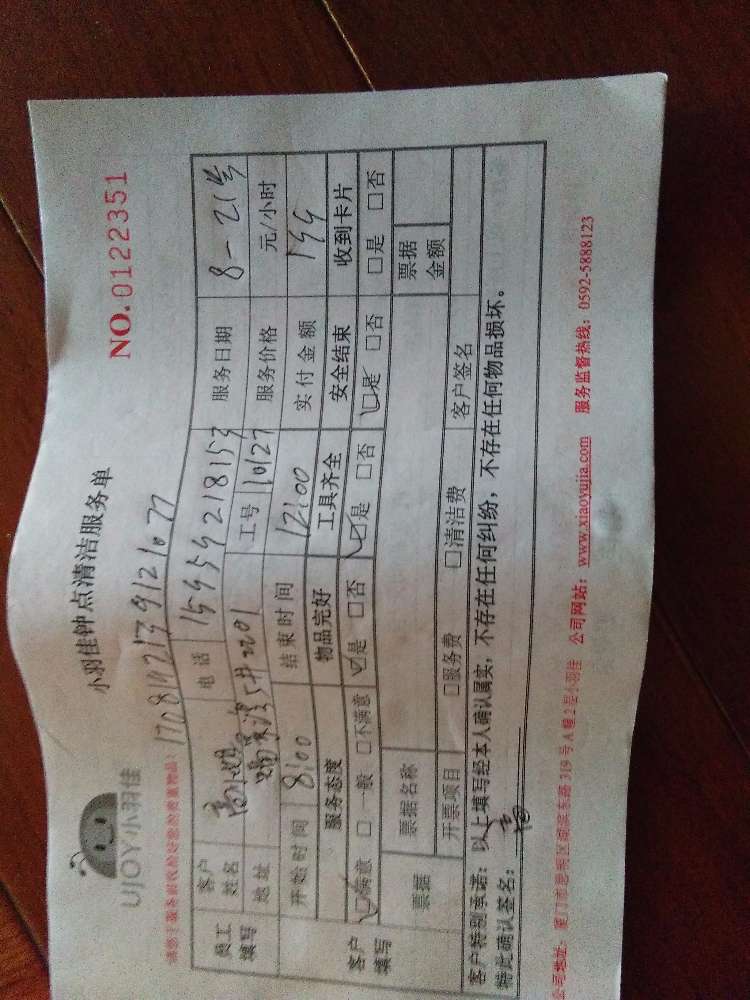 UJOY小羽佳
小羽佳钟点清洁服务单
NO.0122351
17081921391210 77
员工填写
客户姓名 高小姐 电话 15959218153 服务日期 8-21号
地址 2201 工号 10127 服务价格 元/小时
开始时间 8:00 结束时间 12:00 实付金额 144
客户填写
服务态度 物品完好 工具齐全 安全结束 收到卡片
☑满意 □一般 □不满意 ☑是 □否 ☑是 □否 ☑是 □否 □是 □否
票据 票据名称 票据金额
开票项目 □服务费 □清洁费 客户签名
客户特别承诺：以上填写经本人确认属实，不存在任何纠纷，不存在任何物品损坏。
特此确认签名：
公司地址：厦门市思明区湖滨东路319号A幢2层小羽佳 公司网站：www.xiaoyujia.com 服务监督热线：0592-5888123